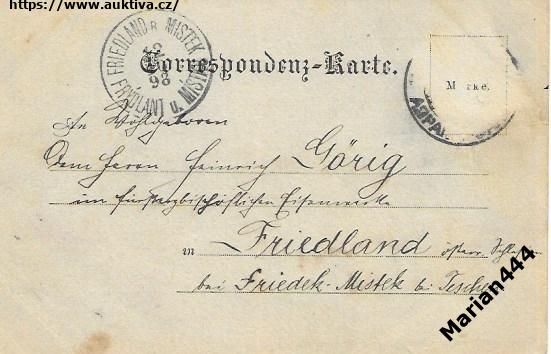 https://www.auktiva.cz/
FRIEDLAND B. MISTEK
98
FRYDLANT u. MISTKU
Correspondenz-Karte.
Marke.
An Wohlgeboren
Dem Herrn Heinrich Görig
im fürsterzbischöflichen Eisenwerke
in Friedland österr. Schlesien
bei Friedek-Mistek bei Teschen
Marian444